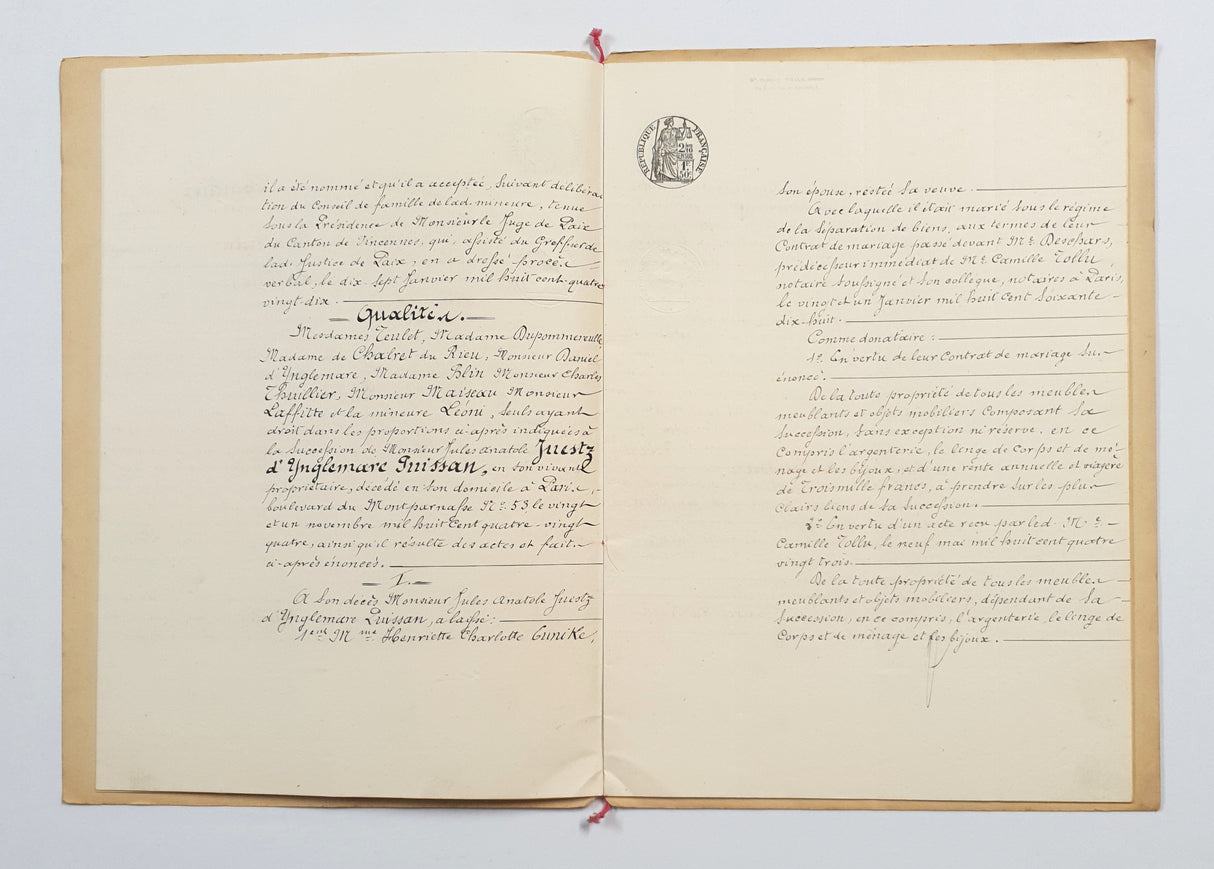 il a été nommé et qu'il a acceptée, suivant délibéra
tion du Conseil de famille de lad. mineure, tenue
sous la Présidence de Monsieur le Juge de Paix
du Canton de Vincennes, qui, assisté du Greffier de
lad. Justice de Paix, en a dressé procès
verbal, le dix sept Janvier mil huit cent quatre
vingt dix.
Qualités.
Mesdames Teulet, Madame Dupommereulle
Madame de Chalret du Rieu, Monsieur Daniel
d'Ynglemare, Madame Blin Monsieur Charles
Thuillier, Monsieur Maiseau Monsieur
Laffitte et la mineure Léoni, seuls ayant
droit dans les proportions ci-après indiquées à
la succession de Monsieur Jules Anatole Juestz
d'Ynglemare Puissan, en son vivant
propriétaire, décédé en son domicile à Paris,
boulevard du Montparnasse No. 53 le vingt
et un novembre mil huit cent quatre-vingt
quatre, ainsi qu'il résulte des actes et faits
ci-après énoncés.
I.
A son décès Monsieur Jules Anatole Juestz
d'Ynglemare Luissan, a laissé:
1ent Mme Henriette Charlotte Cunike,
RÉPUBLIQUE FRANÇAISE
2/10 EN SUS
1F
50c
son épouse, restée sa veuve.
Avec laquelle il était marié sous le régime
de la Séparation de biens, aux termes de leur
Contrat de mariage passé devant Me Deschars,
prédécesseur immédiat de Me Camille Tollu
notaire soussigné et son collègue, notaires à Paris,
le vingt et un Janvier mil huit cent soixante
dix-huit.
Comme donataire:
1o. En vertu de leur Contrat de mariage su-
énoncé.
De la toute propriété de tous les meubles
meublants et objets mobiliers composant sa
succession, sans exception ni réserve. en ce
compris l'argenterie, le linge de corps et de mé-
nage et les bijoux, et d'une rente annuelle et viagère
de Trois mille francs, à prendre sur les plus
clairs biens de sa succession.
2o En vertu d'un acte reçu par led. Me
Camille Tollu, le neuf mai mil huit cent quatre
vingt trois.
De la toute propriété de tous les meubles
meublants et objets mobiliers, dépendant de sa
succession, en ce compris, l'argenterie, le linge de
corps et de ménage et les bijoux.